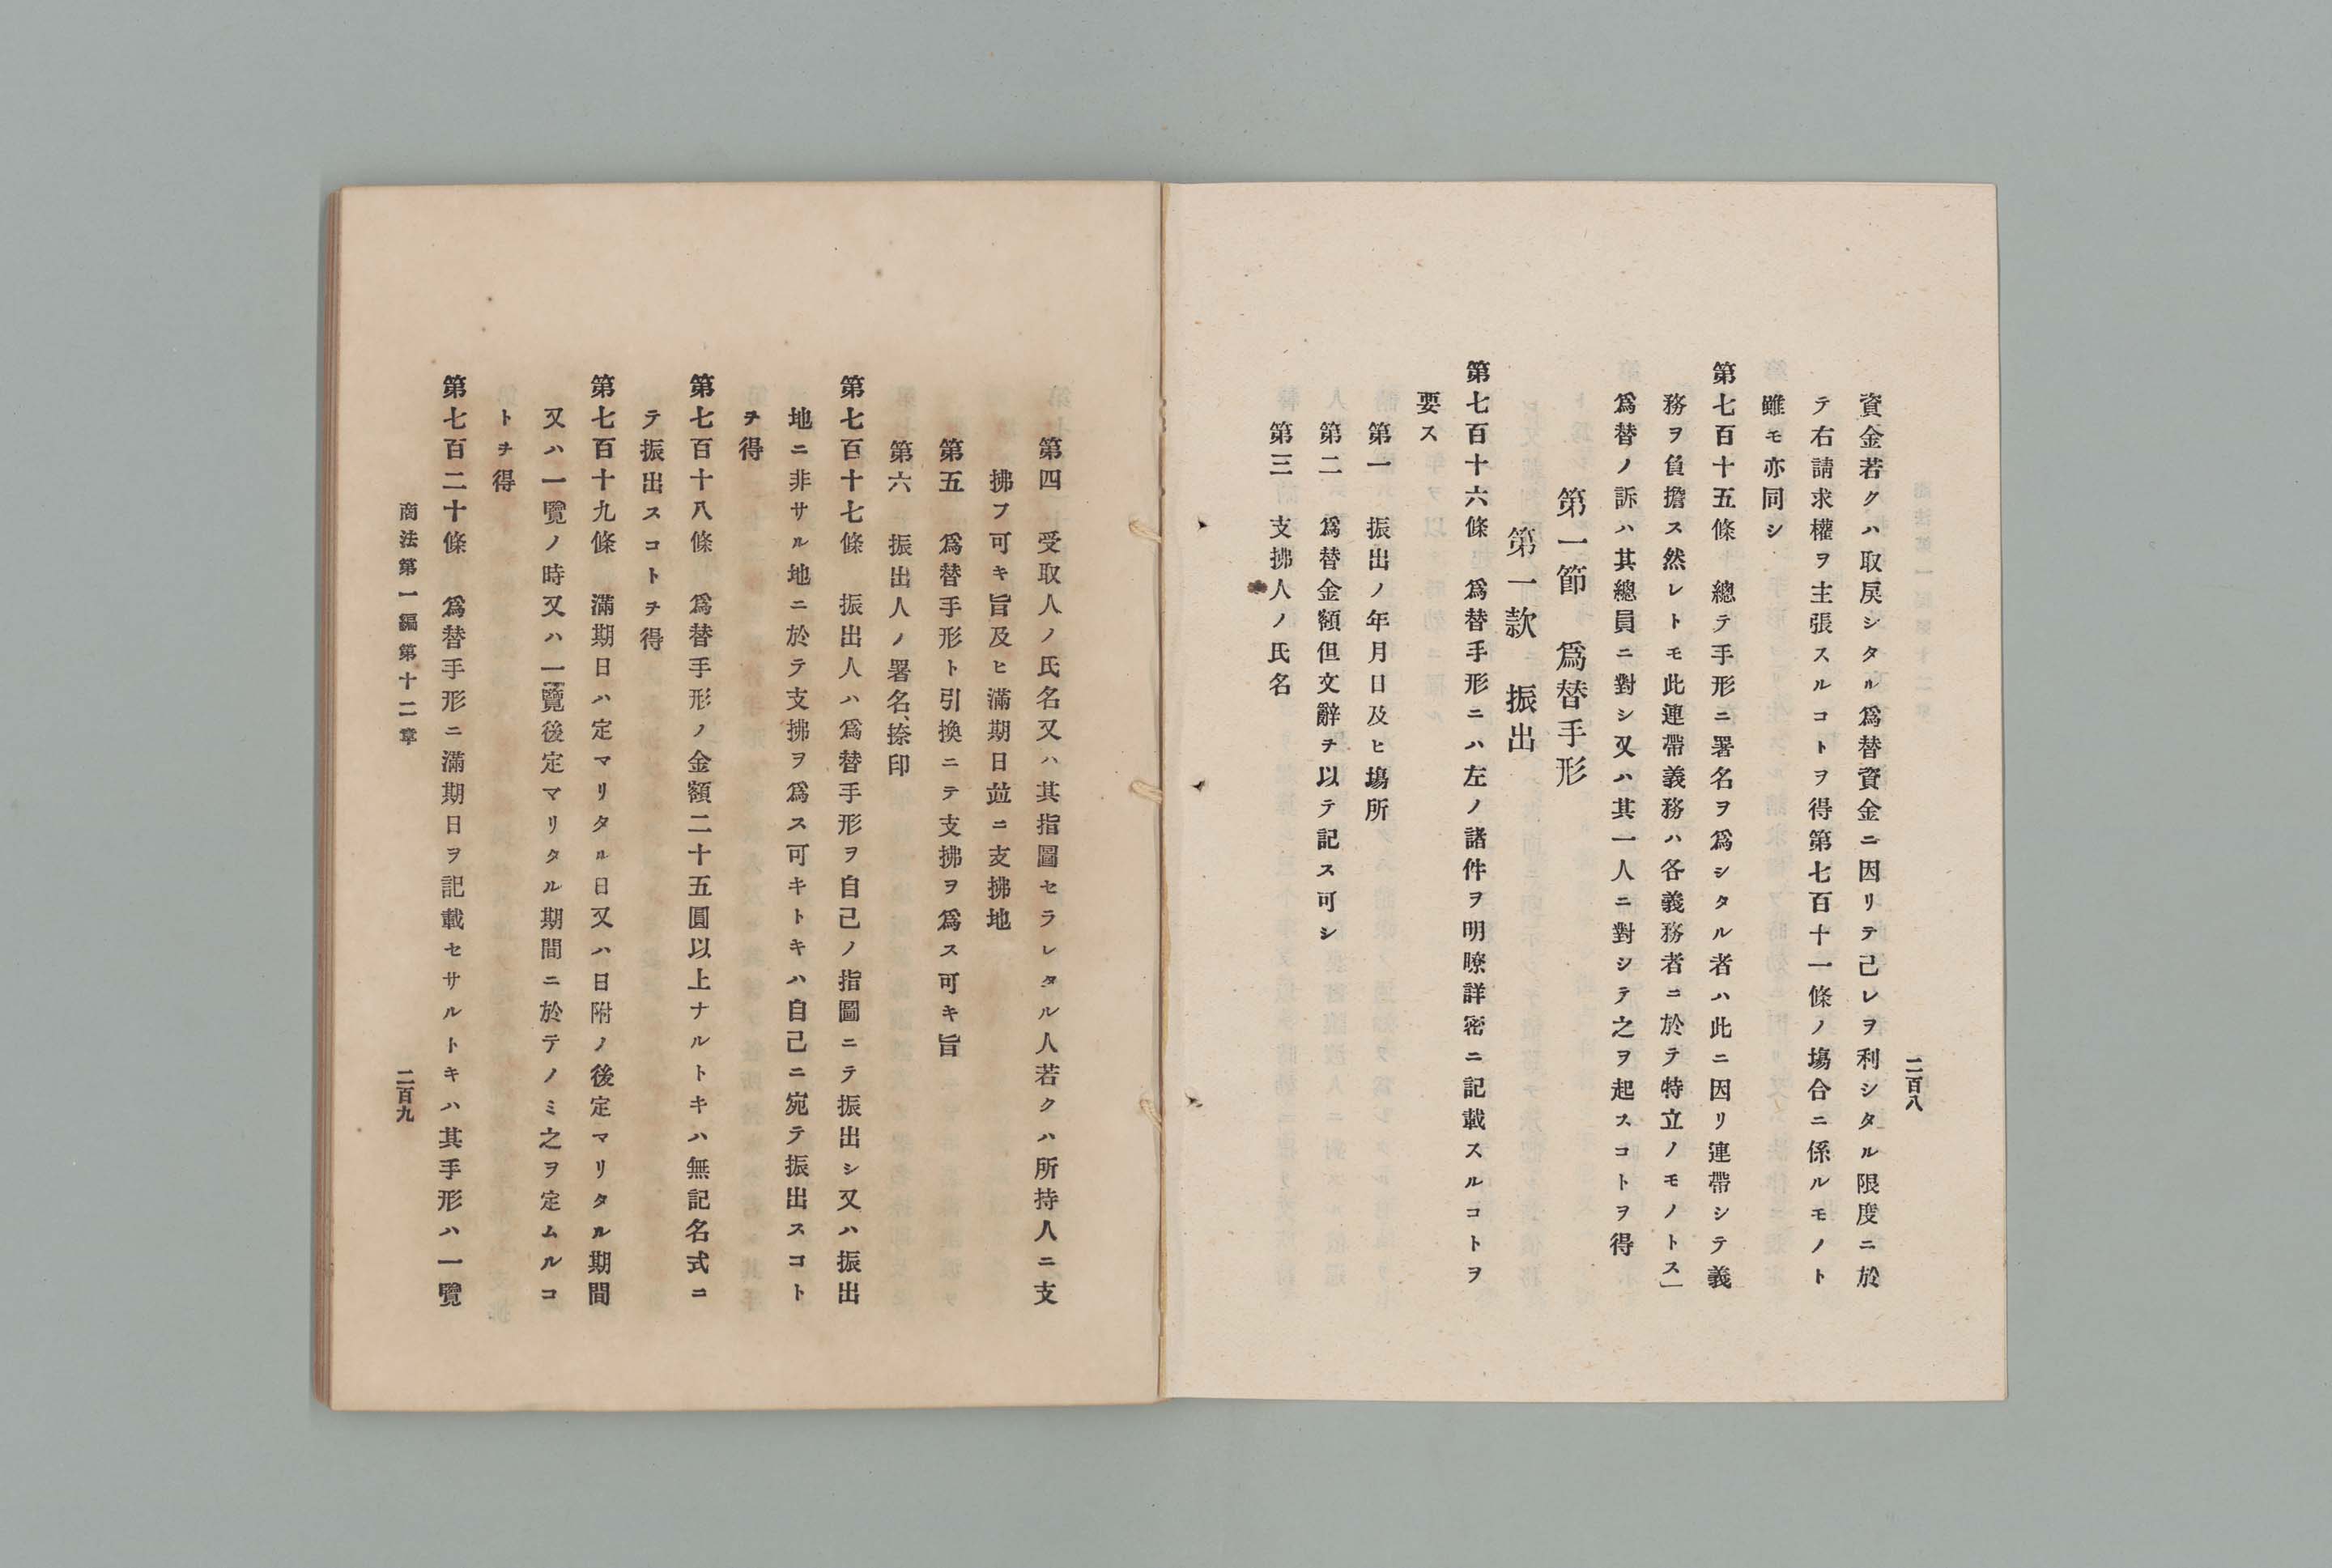 二百八
資金若クハ取戾シタル爲替資金ニ因リテ己レヲ利シタル限度ニ於
テ右請求權ヲ主張スルコトヲ得第七百十一條ノ塲合ニ係ルモノト
雖モ亦同シ
第七百十五條　總テ手形ニ署名ヲ爲シタル者ハ此ニ因リ連帶シテ義
務ヲ負擔ス然レトモ此連帶義務ハ各義務者ニ於テ特立ノモノトス」
爲替ノ訴ハ其總員ニ對シ又ハ其一人ニ對シテ之ヲ起スコトヲ得
第一節　爲替手形
第一款　振出
第七百十六條　爲替手形ニハ左ノ諸件ヲ明瞭詳密ニ記載スルコトヲ
要ス
第一　振出ノ年月日及ヒ塲所
第二　爲替金額但文辭チ以テ記ス可シ
第三　支拂人ノ氏名
第四　受取人ノ氏名又ハ其指圖セラレタル人若クハ所持人ニ支
拂フ可キ旨及ヒ滿期日並ニ支拂地
第五　爲替手形ト引換ニテ支拂ヲ爲ス可キ旨
第六　振出人ノ署名、捺印
第七百十七條　振出人ハ爲替手形ヲ自己ノ指圖ニテ振出シ又ハ振出
地ニ非サル地ニ於テ支拂ヲ爲ス可キトキハ自己ニ宛テ振出スコト
ヲ得
第七百十八條　爲替手形ノ金額二十五圓以上ナルトキハ無記名式ニ
テ振出スコトチ得
第七百十九條　滿期日ハ定マリタル日又ハ日附ノ後定マリタル期間
又ハ一覽ノ時又ハ一覽後定マリタル期間ニ於テノミ之ヲ定ムルコ
トチ得
第七百二十條　爲替手形ニ滿期日ヲ記載セサルトキハ其手形ハ一覽
商法第一編第十二章
二百九